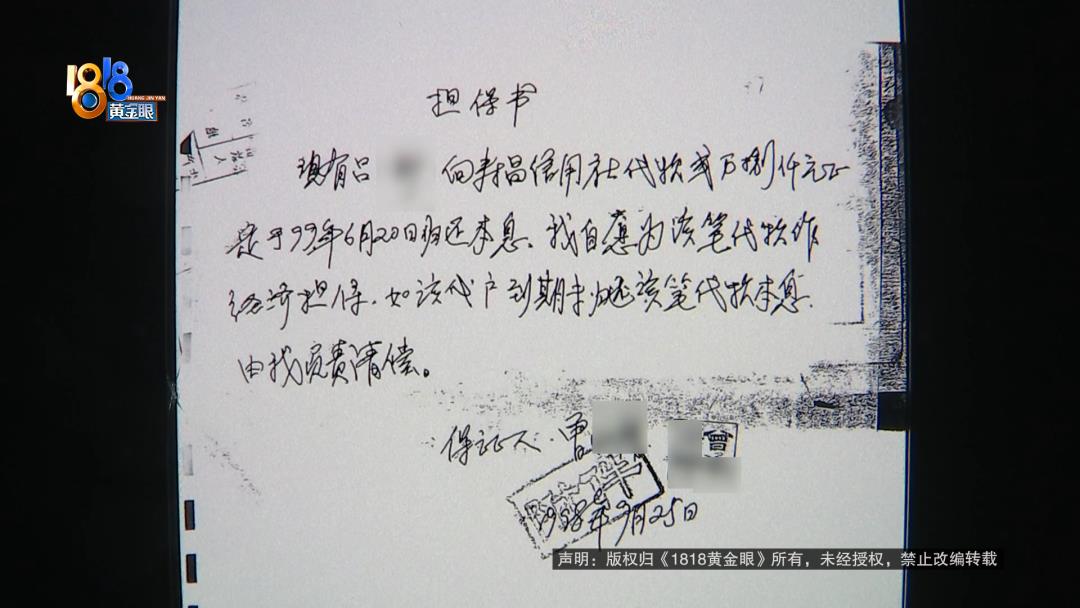 1818
HUANG JIN YAN
黄金眼
担保书
现有吕 向寿昌信用社代款贰万捌仟元正
定于99年6月20日归还本息、我自愿为该笔代款作
经济担保.如该代户到期未归还该笔代款本息.
由我负责清偿。
保证人.曾
曾
1998年9月25日
声明：版权归《1818黄金眼》所有，未经授权，禁止改编转载